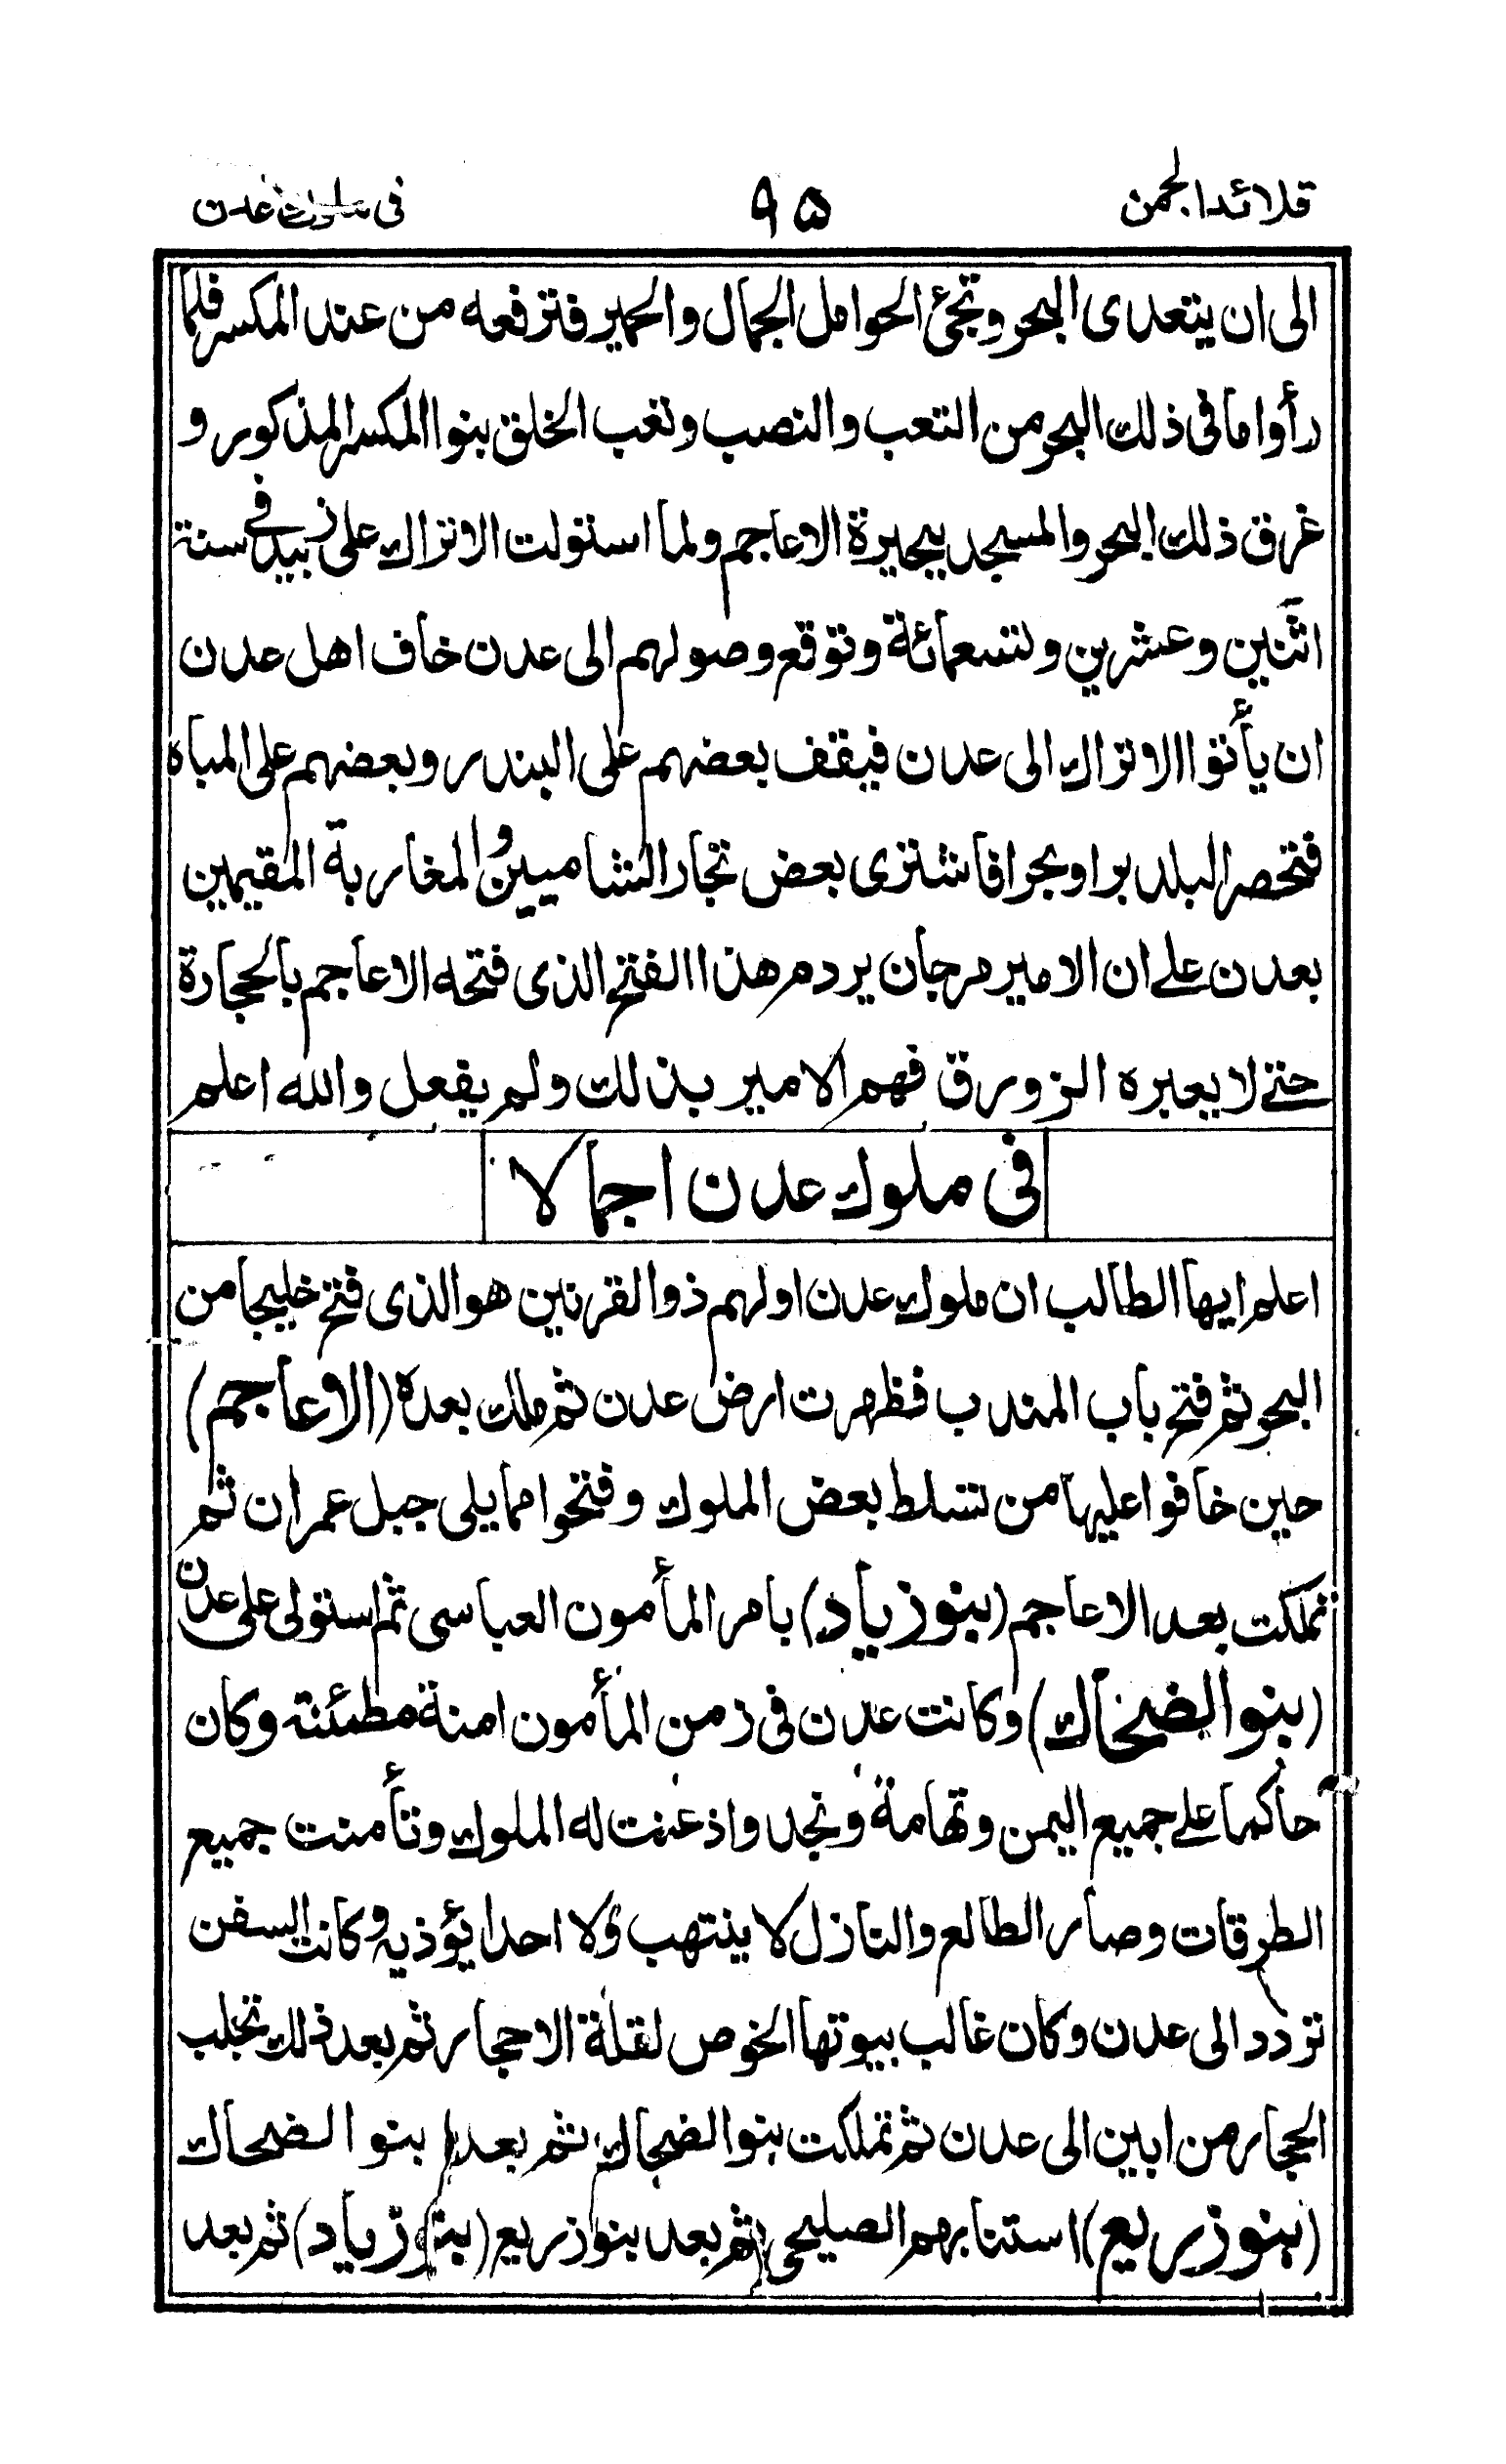 قلائد الجمن ٩٥ فى ملوك عدن
الى ان يتعدى البحر وتجئ الحوامل الجمال والحمير فترفعه من عند المكسر فلما
رأوا ما فى ذلك البحر من التعب والنصب وتغب الخلق بنوا المكسر المذكور و
غرق ذلك البحر والمسجد ببحيرة الاعاجم ولما استولت الاتراك على زبيد فى سنة
اثنين وعشرين وتسعمائة وتوقع وصولهم الى عدن خاف اهل عدن
ان يأتوا الاتراك الى عدن فيقف بعضهم على البندر وبعضهم على المباه
فتحصر البلد برا وبحرا فاشترى بعض تجار الشاميين والمغاربة المقيمين
بعدن على ان الامير مرجان يردم هذا الفتح الذى فتحه الاعاجم بالحجارة
حتى لا يعبره الزورق فهم الامير بذلك ولم يفعل والله اعلم
فى ملوك عدن اجمالا
اعلم ايها الطالب ان ملوك عدن اولهم ذوالقرنين هو الذى فتح خليجا من
البحر ثم فتح باب المندب فظهرت ارض عدن ثم ملك بعده (الاعاجم)
حين خافوا عليها من تسلط بعض الملوك وفتحوا مما يلى جبل عمران ثم
تملكت بعد الاعاجم (بنو زياد) بامر المأمون العباسى ثم استولى على عدن
(بنوا الضحاك) وكانت عدن فى زمن المأمون امنة مطمئنة وكان
حاكما على جميع اليمن وتهامة ونجد واذعنت له الملوك وتأمنت جميع
الطرقات وصار الطالع والنازل لا ينتهب ولا احدا يؤذيه وكانت السفن
تردد الى عدن وكان غالب بيوتها الخوص لقلة الاحجار ثم بعد ذلك تجلب
الحجار من ابين الى عدن ثم تملكت بنوا الضحاك ثم بعد بنوا الضحاك
(بنو زريع) استنابهم الصليحى ثم بعد بنوا زريع (بنو زياد) ثم بعد